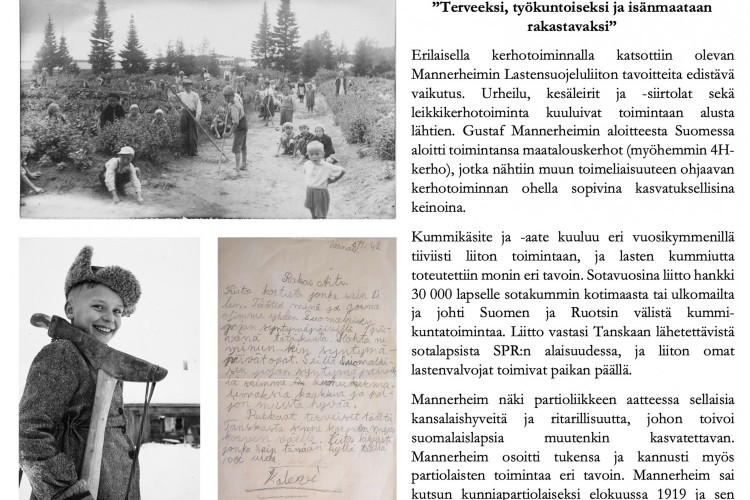 ”Terveeksi, työkuntoiseksi ja isänmaataan
rakastavaksi”
Erilaisella kerhotoiminnalla katsottiin olevan
Mannerheimin Lastensuojeluliiton tavoitteita edistävä
vaikutus. Urheilu, kesäleirit ja -siirtolat sekä
leikkikerhotoiminta kuuluivat toimintaan alusta
lähtien. Gustaf Mannerheimin aloitteesta Suomessa
aloitti toimintansa maatalouskerhot (myöhemmin 4H-
kerho), jotka nähtiin muun toimeliaisuuteen ohjaavan
kerhotoiminnan ohella sopivina kasvatuksellisina
keinoina.
Kummikäsite ja -aate kuuluu eri vuosikymmenillä
tiiviisti liiton toimintaan, ja lasten kummiutta
toteutettiin monin eri tavoin. Sotavuosina liitto hankki
30 000 lapselle sotakummin kotimaasta tai ulkomailta
ja johti Suomen ja Ruotsin välistä kummi-
kuntatoimintaa. Liitto vastasi Tanskaan lähetettävistä
sotalapsista SPR:n alaisuudessa, ja liiton omat
lastenvalvojat toimivat paikan päällä.
Mannerheim näki partioliikkeen aatteessa sellaisia
kansalaishyveitä ja ritarillisuutta, johon toivoi
suomalaislapsia muutenkin kasvatettavan.
Mannerheim osoitti tukensa ja kannusti myös
partiolaisten toimintaa eri tavoin. Mannerheim sai
kutsun kunniapartiolaiseksi elokuussa 1919 ja sen
Rakas Äiti
Kiitos kortista jonka sain
Täällä minä ja Jorma
olimme yhden Suomalais
pojan syntymäpäivillä
minun kin syntymä
päivät
sia pojan syntymäpäivil
lä saimme
jon muuta hyvää.
Paljon terveisiä täältä
Tanskasta
Kalervo